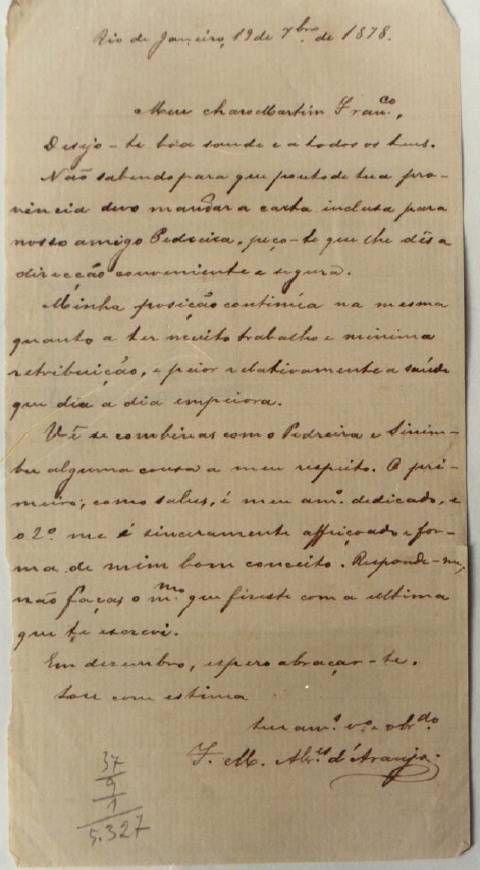 Rio de Janeiro, 19 de 7bro de 1878.
Meu charo Martim Franco,
Desejo-te boa saude e a todos os teus.
Não sabendo para que ponto de tua pro-
vincia devo mandar a carta inclusa para
nosso amigo Pedreira, peço-te que lhe dês a
direcção conveniente e segura.
Minha posição continúa na mesma
quanto a ter muito trabalho e minima
retribuição, e peior relativamente a saúde
que dia a dia empeiora.
Vê se combinas com o Pedreira e Sinim-
bu alguma cousa a meu respeito. O pri-
meiro, como sabes, é meu amo. dedicado, e
o 2o. me é sinceramente affeiçoado e for-
ma de mim bom conceito. Responde-me,
não faças o mmo. que fizeste com a ultima
que te escrevi.
Em dezembro, espero abraçar-te.
Sou com estima
teu amo. vo. e obrdo.
F. M. Abres d'Araujo.
37
9
1
5.327